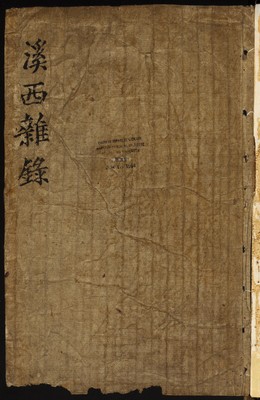 溪西雜錄